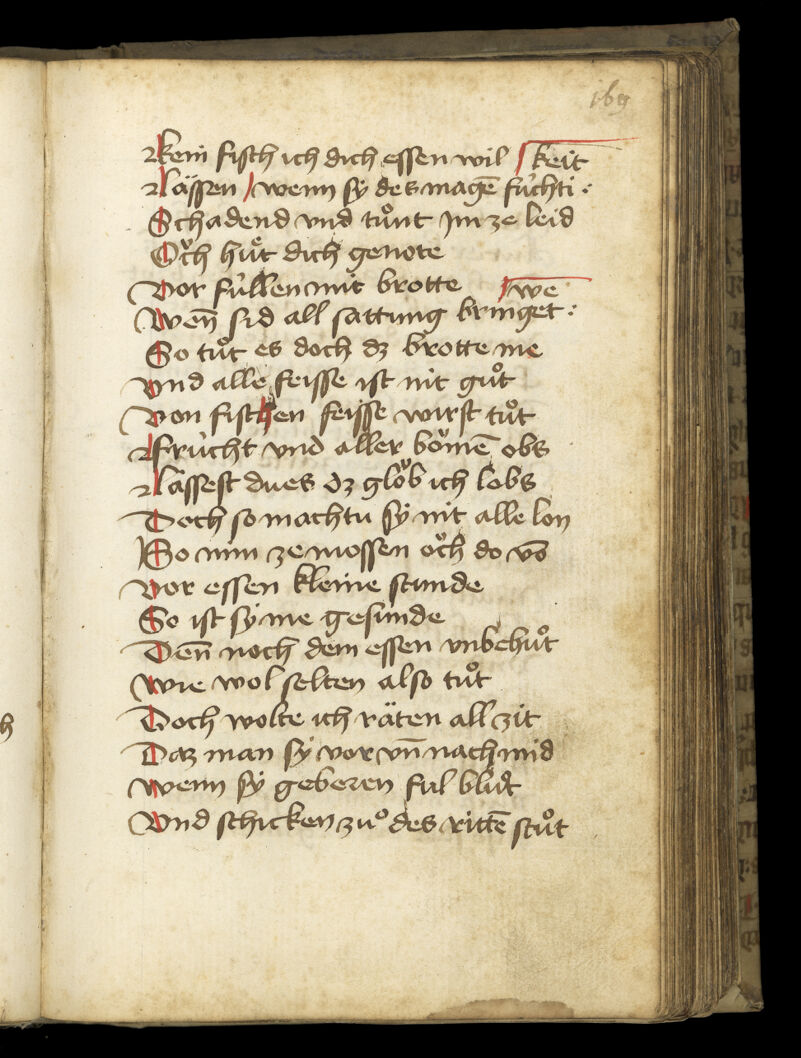 169
Kein fisch ich dich essen wil keit
Lässen wenn sÿ des magē fu̍chti :
Schadend vnd tuͦnt Jm ze leid
Oͮch huͤt dich genote
Vor fu̍llen mit brotte we
Wen̄ sid all sattung bringet :
So tuͦt es doch dz brotte me
Vnd alle feisse ist nit guͦt
Von fischen feisse wirst tuͦt
Fru̍cht vnd aller boͤmē obs
Lässest du es dz gloͮb ich lobs
Doch so machtu sÿ nit alle lon
So nim ze mossen oͮch do vō
Vor essen kleine stunde
So ist sÿ me gesunde
Den̄ noch dem essen vnbehuͦt
Wie wol selten also tuͦt
Doch wolte ich räten all zit
Daz man sÿ vor vn̄ nach mid
Wenn sÿ geberen ful bluͦt
Vnd schicken zuͦ des rittē stuͦt